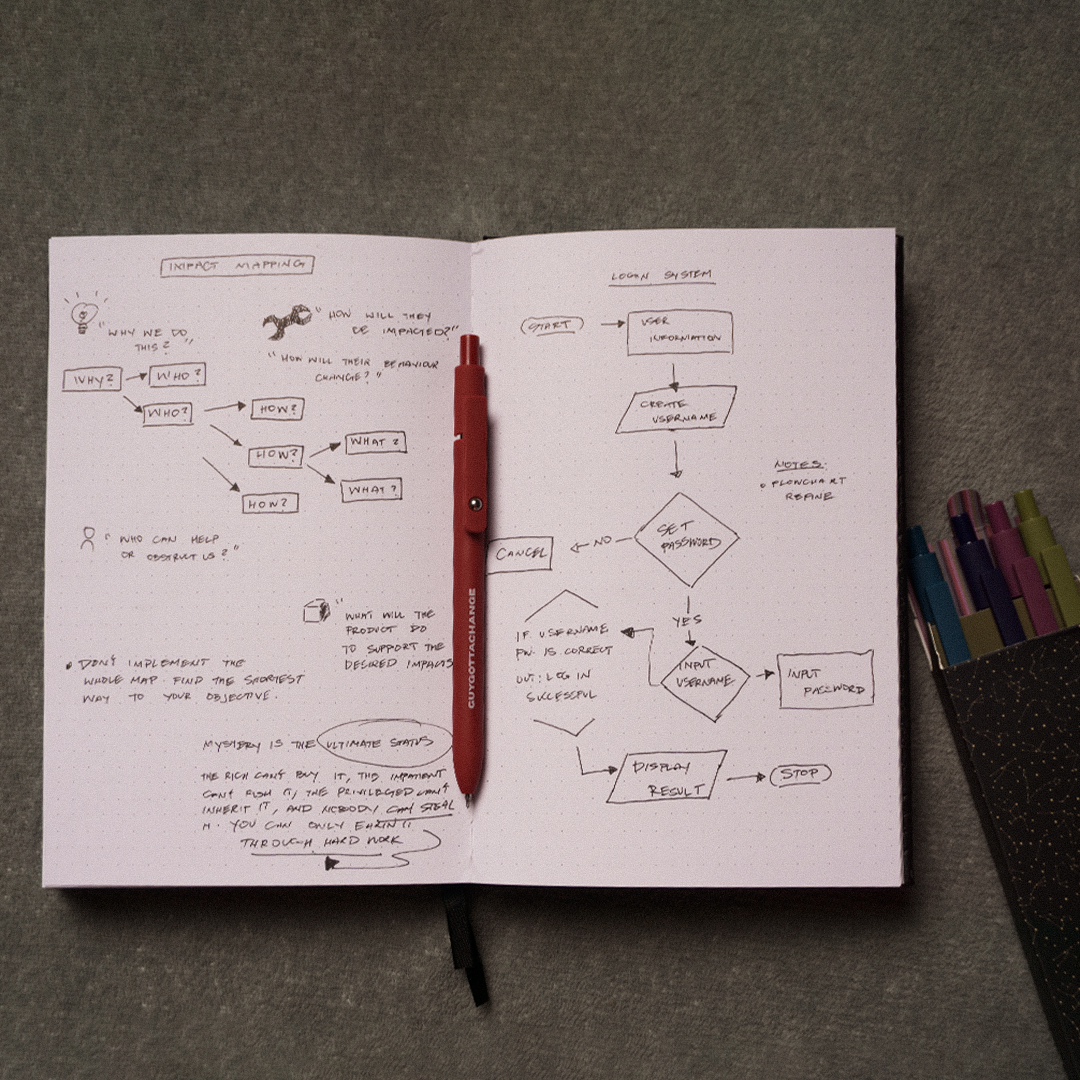 IMPACT MAPPING
"WHY WE DO
THIS?"
"HOW WILL THEY
BE IMPACTED?"
"HOW WILL THEIR BEHAVIOUR
CHANGE?"
WHY?
WHO?
WHO?
HOW?
HOW?
WHAT?
WHAT?
HOW?
"WHO CAN HELP
OR OBSTRUCT US?"
"WHAT WILL THE
PRODUCT DO
TO SUPPORT THE
DESIRED IMPACTS
• DON'T IMPLEMENT THE
WHOLE MAP. FIND THE SHORTEST
WAY TO YOUR OBJECTIVE.
MYSTERY IS THE ULTIMATE STATUS
THE RICH CAN'T BUY IT, THE IMPATIENT
CAN'T RUSH IT, THE PRIVILEGED CAN'T
INHERIT IT, AND NOBODY CAN STEAL
IT. YOU CAN ONLY EARN IT
THROUGH HARD WORK
GUYGOTTACHANGE
LOGIN SYSTEM
START
USER
INFORMATION
CREATE
USERNAME
NOTES:
FLOWCHART
REFINE
SET
PASSWORD
NO
CANCEL
YES
IF USERNAME
PW. IS CORRECT
OUT: LOG IN
SUCCESSFUL
INPUT
USERNAME
INPUT
PASSWORD
DISPLAY
RESULT
STOP